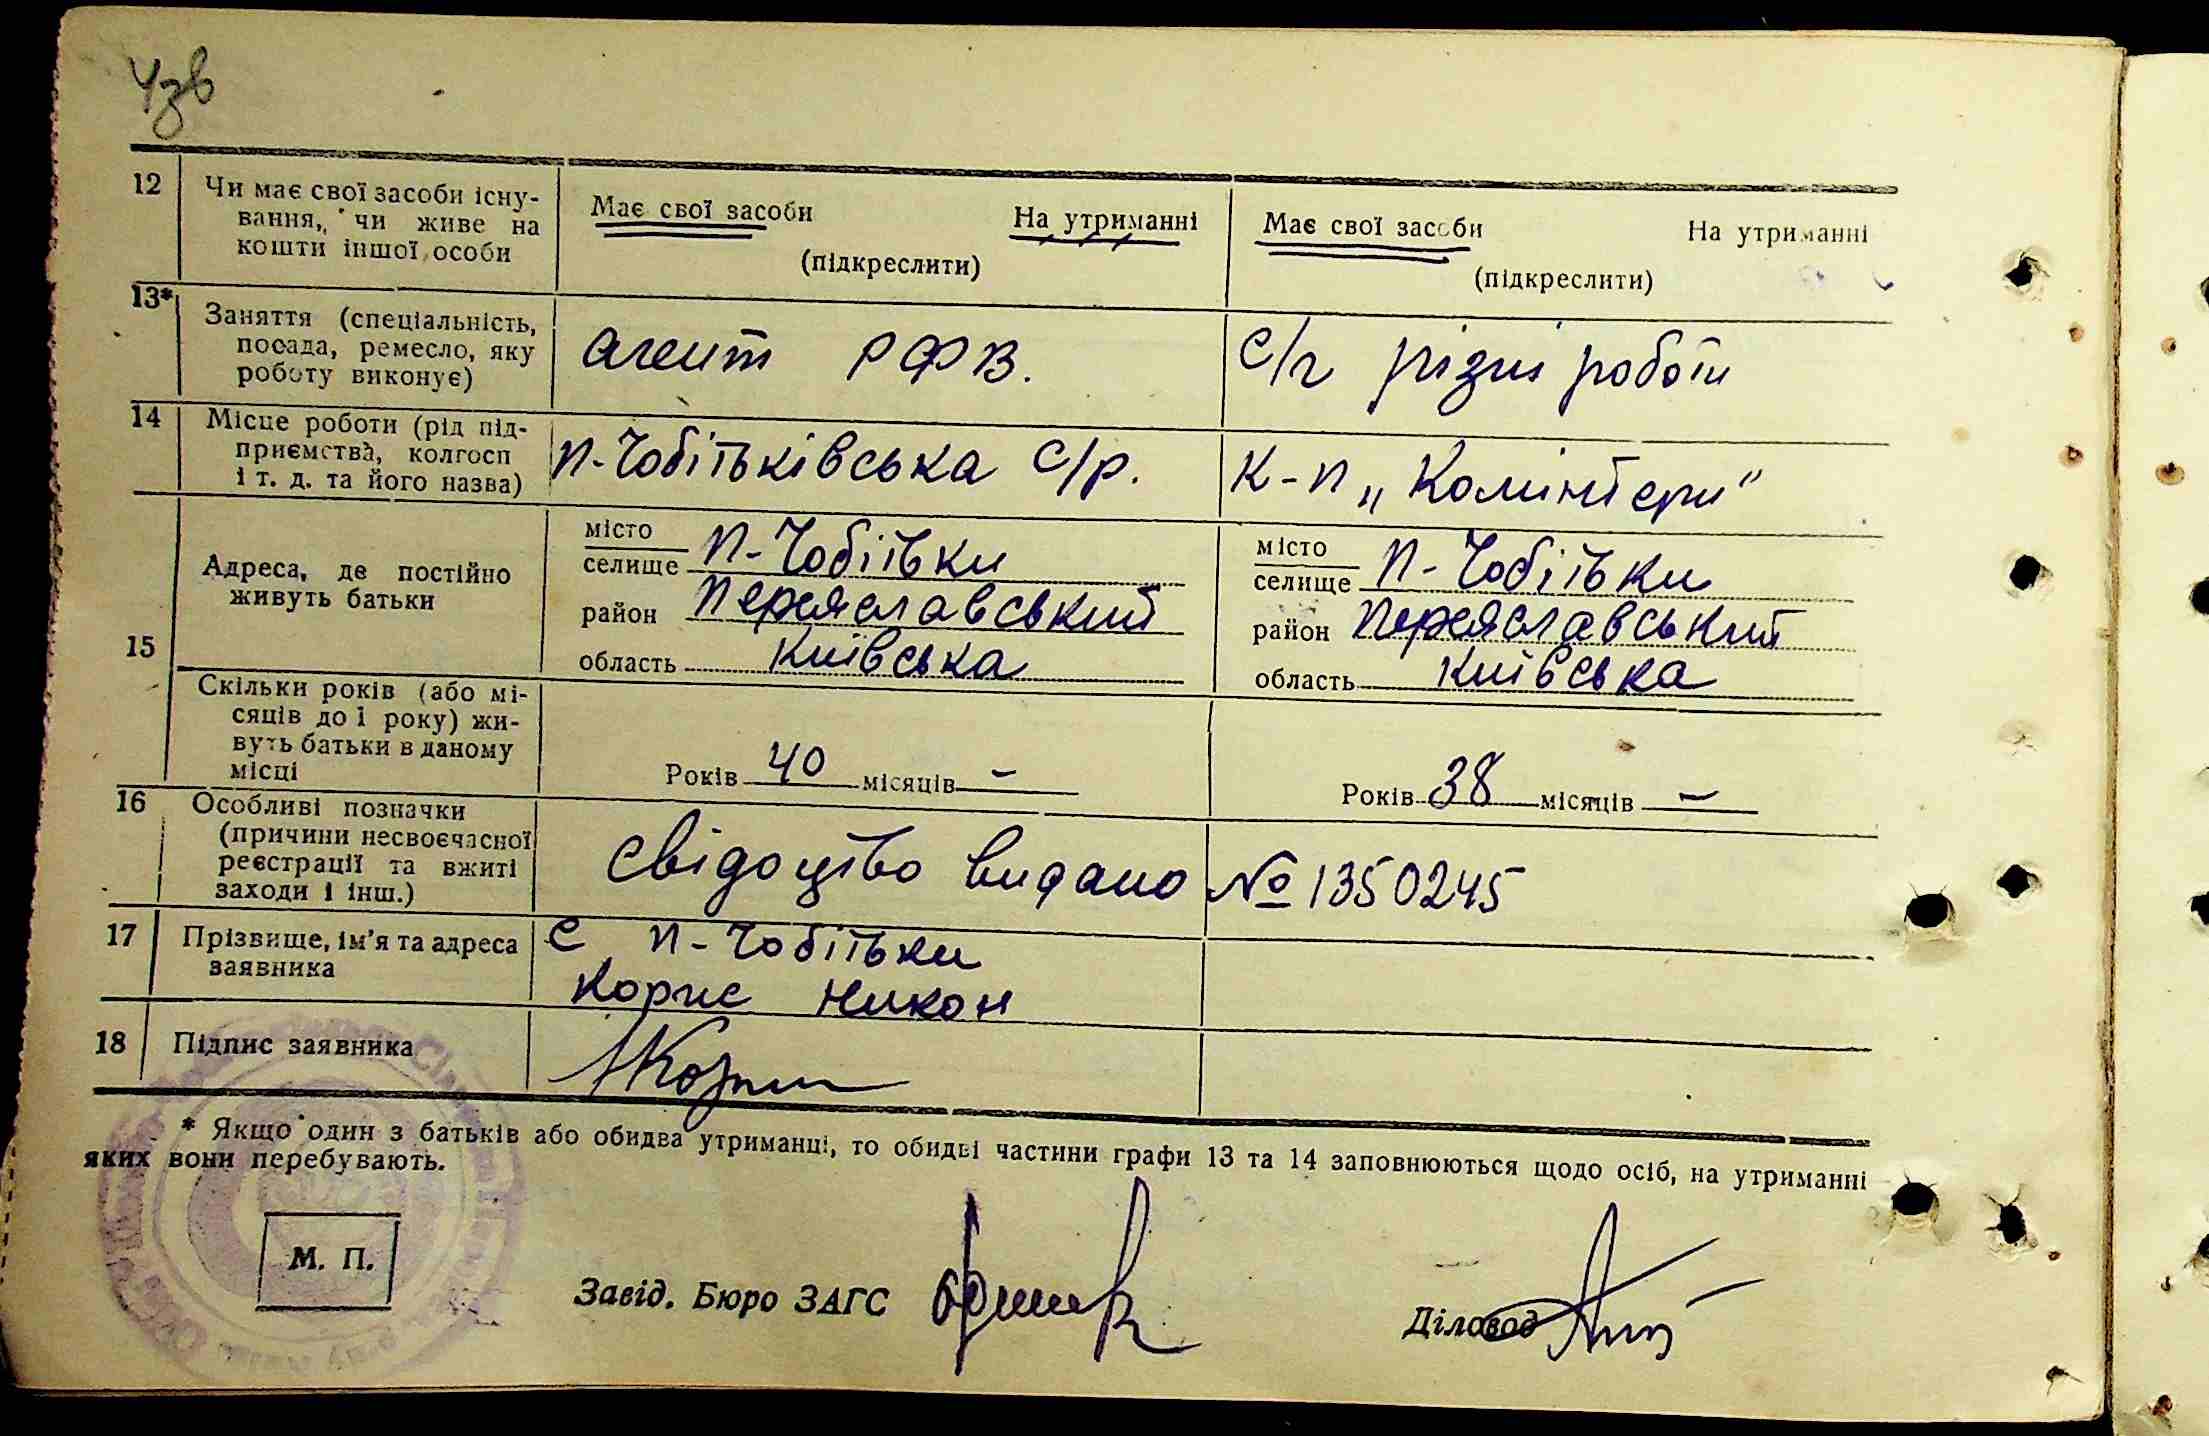 43в
12 Чи має свої засоби існу-
вання, чи живе на
кошти іншої особи
Має свої засоби На утриманні
(підкреслити)
Має свої засоби На утриманні
(підкреслити)
13* Заняття (спеціальність,
посада, ремесло, яку
роботу виконує)
агент РФВ.
с/г різні роботи
14 Місце роботи (рід під-
приємства, колгосп
і т. д. та його назва)
П-Чобітьківська с/р.
к-п „Комінтерн"
15 Адреса, де постійно
живуть батьки
місто
селище П-Чобітьки
район Переяславський
область Київська
місто
селище П-Чобітьки
район Переяславський
область Київська
Скільки років (або мі-
сяців до 1 року) жи-
вуть батьки в даному
місці
Років 40 місяців –
Років 38 місяців –
16 Особливі позначки
(причини несвоєчасної
реєстрації та вжиті
заходи і інш.)
Свідоцтво видано № 1350245
17 Прізвище, ім'я та адреса
заявника
с П-Чобітьки
Корпс Никон
18 Підпис заявника
* Якщо один з батьків або обидва утриманці, то обидві частини графи 13 та 14 заповнюються щодо осіб, на утриманні
яких вони перебувають.
М. П.
Завід. Бюро ЗАГС
Діловод